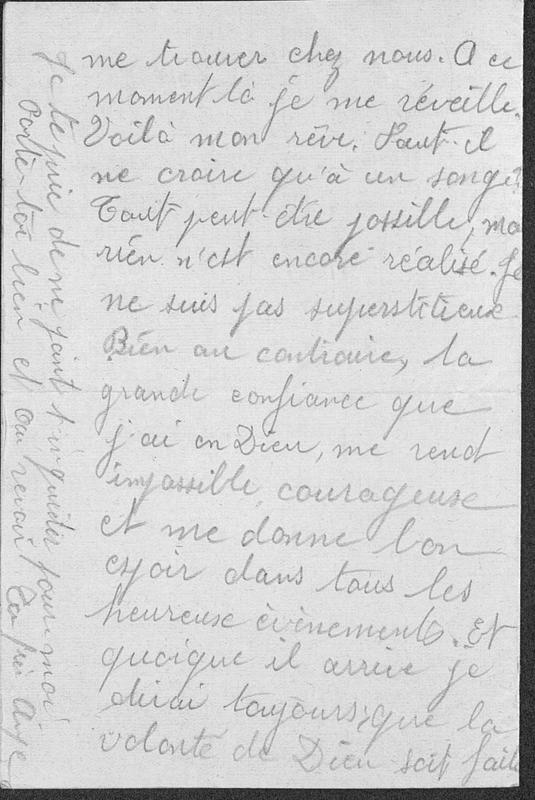 me trouver chez nous. A ce
moment là je me réveille.
Voilà mon rêve. Faut-il
ne croire qu'à un songe?
Tout peut être possible, ma
rien n'est encore réalisé. Je
ne suis pas superstitieux
Bien au contraire, la
grande confiance que
j'ai en Dieu, me rend
impassible, courageuse
et me donne bon
espoir dans tous les
heureux évènements. Et
quoique il arrive je
dirai toujours que la
volonté de Dieu soit faite
Je te prie de ne point t'inquiéter pour moi
Porte-toi bien et au revoir Ta